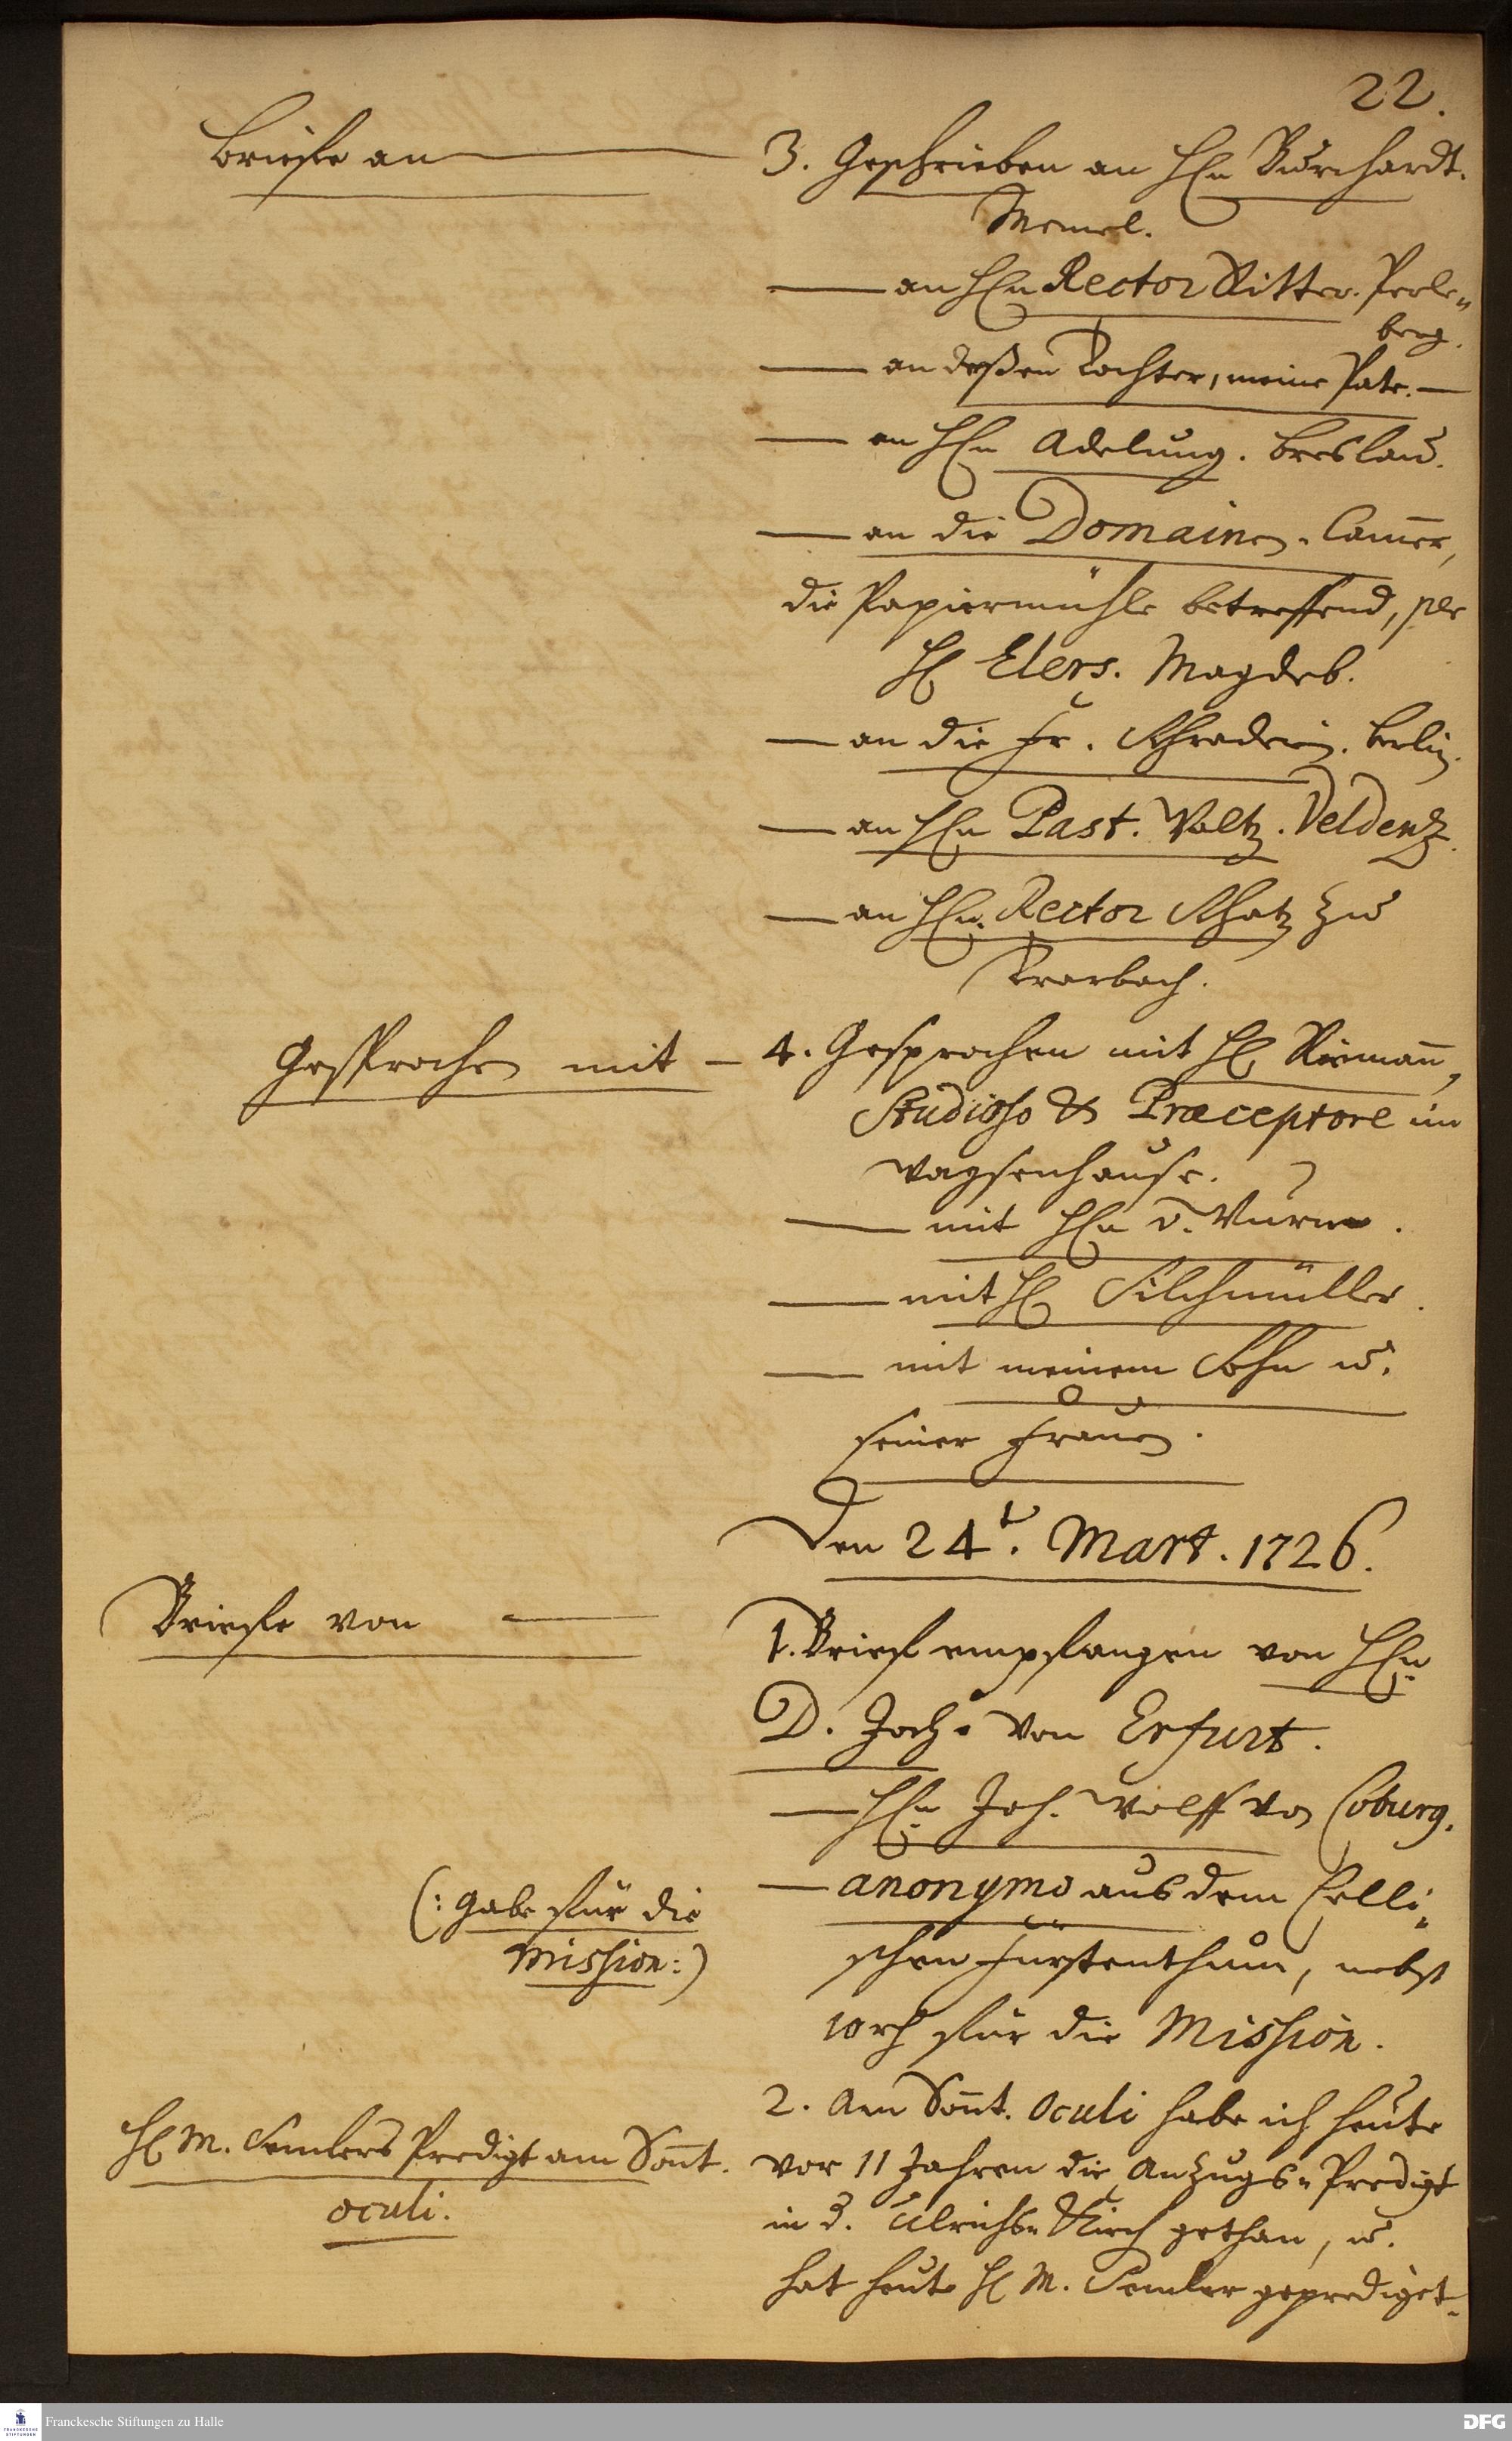 22.
Briefe an
3. Geschrieben an HEn Burchardt.
Memel.
an HEn Rector Ritter. Perle„
berg.
an deßen Tochter, meine Pate.
an HEn Adelung. Breslau.
an die Domainen-Cammer,
die Papiermühle betreffend, per
H Elers. Magdeb.
an die Fr. Schraderin. Berlin.
an HEn Past. Valtz. Veldentz.
an HEn. Rector Schatz zu
Trarbach.
Gesprochen mit
4. Gesprochen mit H Riemann,
Studioso & Præceptore im
Waysenhause.
mit HEn v. Wurm.
mit H Silchmüller.
mit meinem Sohn u.
seiner Frauen.
Den 24t. Mart. 1726.
Briefe von
1. Brief empfangen von HEn
D. Joch. von Erfurt.
HEn Joh. Wolff von Coburg.
(: Gabe für die
Mission :)
anonymo aus dem Celli„
schen Fürstenthum, nebst
10 rh für die Mission.
H M. Semlers Predigt am Sont.
oculi.
2. Am Sont. Oculi habe ich heute
vor 11 Jahren die Anzugs-Predigt
in d. Ulrichs-Kirch gethan, u.
hat heute H M. Semler geprediget.
Franckesche Stiftungen zu Halle
FRANCKESCHE STIFTUNGEN
DFG